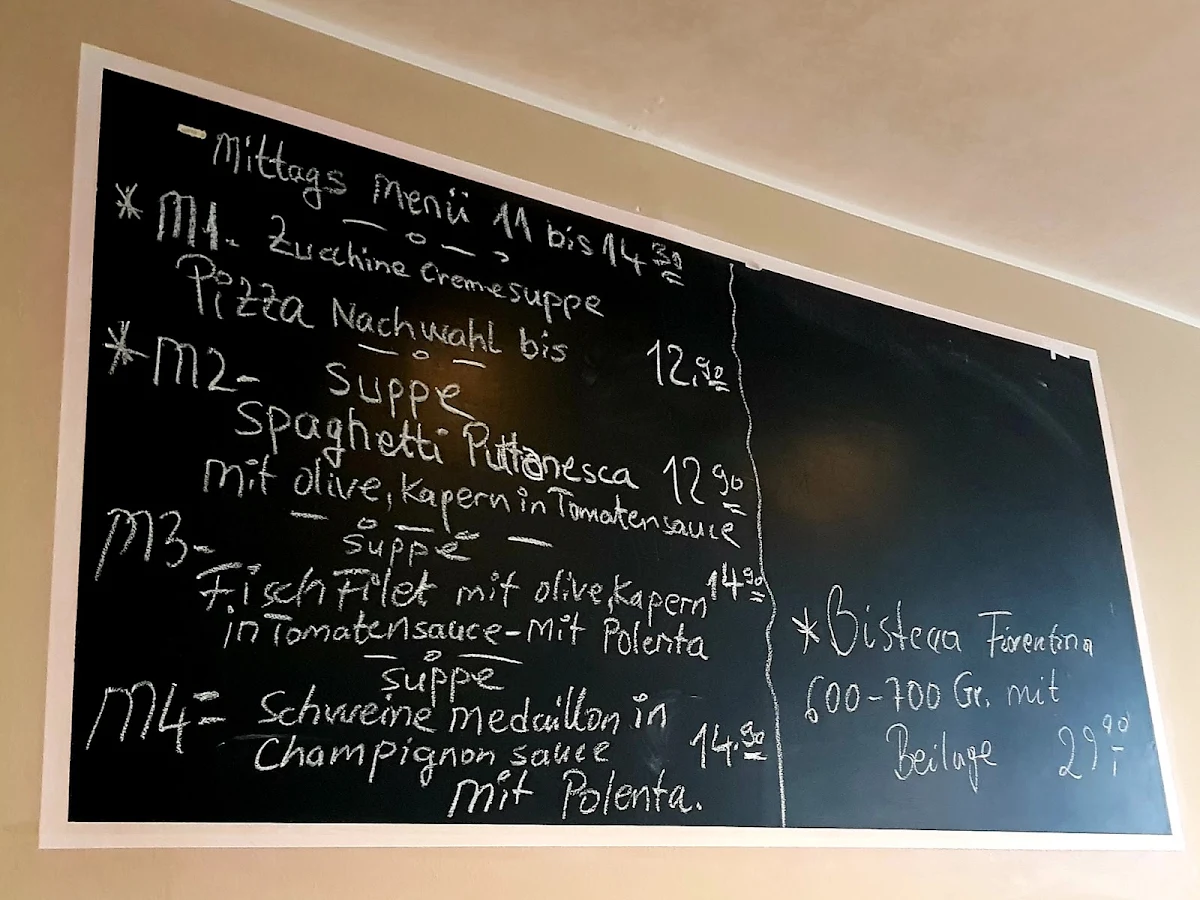 - Mittags Menü 11 bis 14 30
* M1. Zucchine Cremesuppe
Pizza Nachwahl bis 12.90
* M2- Suppe
Spaghetti Puttanesca 12 90
mit olive, Kapern in Tomatensauce
M3- Suppe
Fisch Filet mit olive, Kapern 14 90
in Tomatensauce - Mit Polenta
Suppe
M4= Schweine medaillon in
Champignon sauce 14.90
mit Polenta.
* Bistecca Fiorentina
600-700 Gr. mit
Beilage 29 90